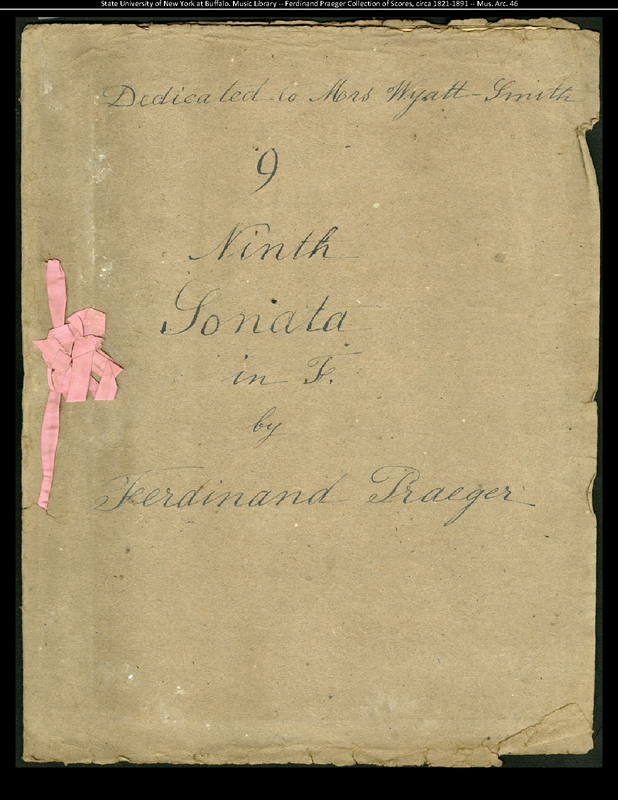 State University of New York at Buffalo. Music Library -- Ferdinand Praeger Collection of Scores, circa 1821-1891 -- Mus. Arc. 46
Dedicated to Mrs Wyatt-Smith
9
Ninth
Sonata
in F.
by
Ferdinand Praeger